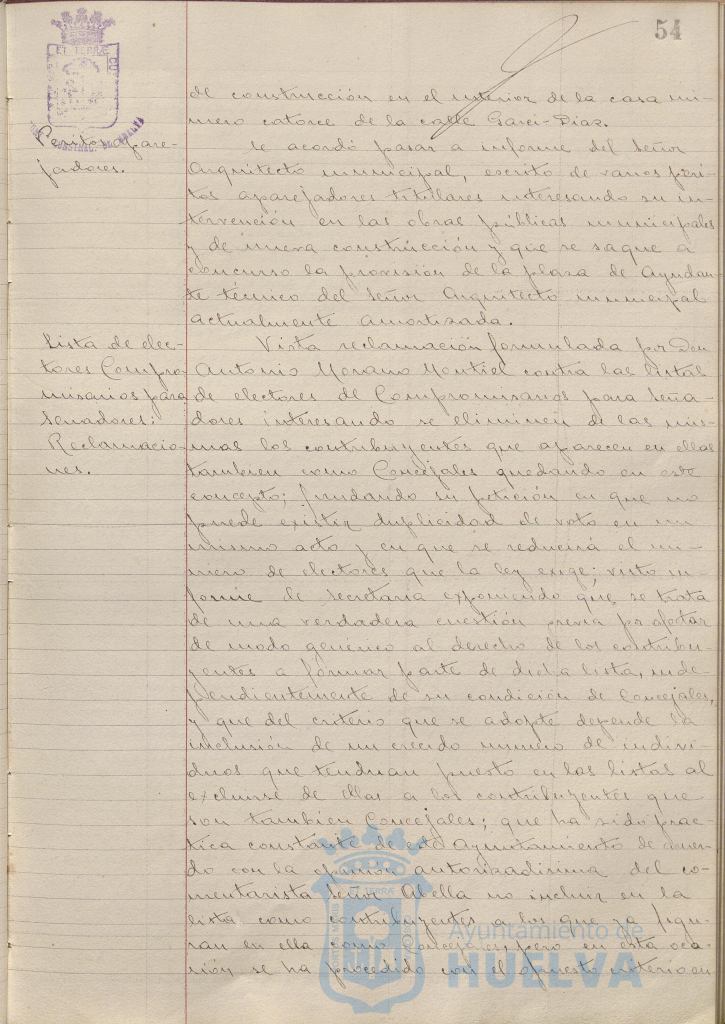 54
de construcción en el interior de la casa nú-
mero catorce de la calle Garci-Diaz.
Peritos apare-
jadores.
Se acordó pasar a informe del Señor
Arquitecto municipal, escrito de varios peri-
tos aparejadores titulares interesando su in-
tervención en las obras públicas municipales
y de nueva construcción y que se saque a
concurso la provisión de la plaza de Ayudan-
te técnico del Señor Arquitecto municipal
actualmente amortizada.
Lista de elec-
tores Compro-
misarios para
Senadores:
Reclamacio-
nes.
Vista reclamación formulada por Don
Antonio Morano Montiel contra las listas
de electores de Compromisarios para Sena-
dores interesando se eliminen de las mis-
mas los contribuyentes que aparecen en ellas
tambien como Concejales quedando en este
concepto; fundando su petición en que no
puede existir duplicidad de voto en un
mismo acto y en que se reducirá el nú-
mero de electores que la ley exige; visto in-
forme de Secretaria exponiendo que se trata
de una verdadera cuestión previa por afectar
de modo genérico al derecho de los contribu-
yentes a formar parte de dicha lista, inde-
pendientemente de su condición de Concejales,
y que del criterio que se adopte depende la
inclusión de un crecido numero de indivi-
duos que tendrian puesto en las listas al
excluirse de ellas a los contribuyentes que
son tambien Concejales; que ha sido prac-
tica constante de este Ayuntamiento de acuer-
do con la opinion autorizadisima del co-
mentarista Señor Abella no incluir en la
lista como contribuyentes a los que ya figu-
ran en ella como Concejales, pero en esta oca-
sión se ha procedido con el opuesto criterio en
Ayuntamiento de
HUELVA